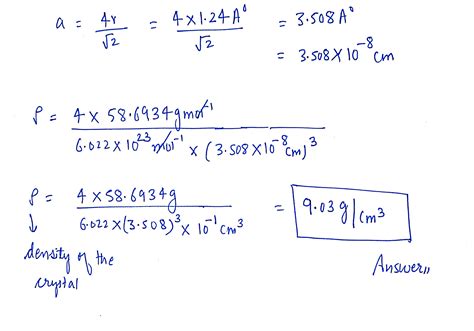 a = 4r/√2 = 4×1.24A°/√2 = 3.508A°
= 3.508×10⁻⁸ cm
ρ = 4 × 58.6934 g mol⁻¹ / 6.022×10²³ mol⁻¹ × (3.508×10⁻⁸ cm)³
ρ = 4×58.6934g / 6.022×(3.508)³ × 10⁻¹ cm³ = 9.03 g/cm³
↓
density of the
crystal
Answer,,